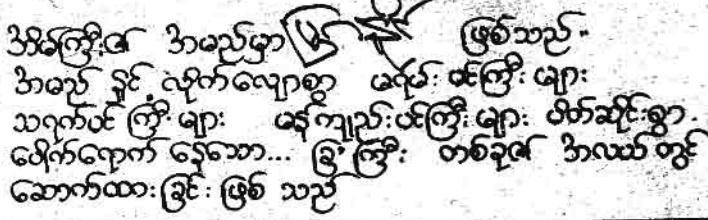 အိမ်ကြီး၏ အမည်မှာ မြိုင် ဖြစ်သည်။
အမည် နှင့် လိုက်လျောစွာ မရမ်း ပင်ကြီး များ
သရက်ပင် ကြီး များ မန်ကျည်းပင်ကြီး များ ပိတ်ဆိုင်းစွာ
ပေါက်ရောက် နေသော... ခြံ ကြီး တစ်ခု၏ အလယ် တွင်
ဆောက်ထား ခြင်း ဖြစ် သည်